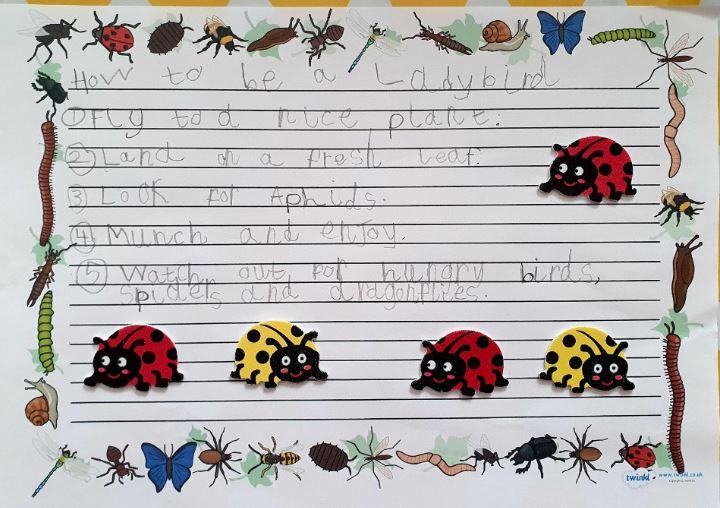 How to be a Ladybird
① Fly to a nice plant.
② Land on a fresh leaf.
③ Look for Aphids.
④ Munch and enjoy.
⑤ Watch out for hungry birds,
spiders and dragonflies.
twinkl
www.twinkl.co.uk